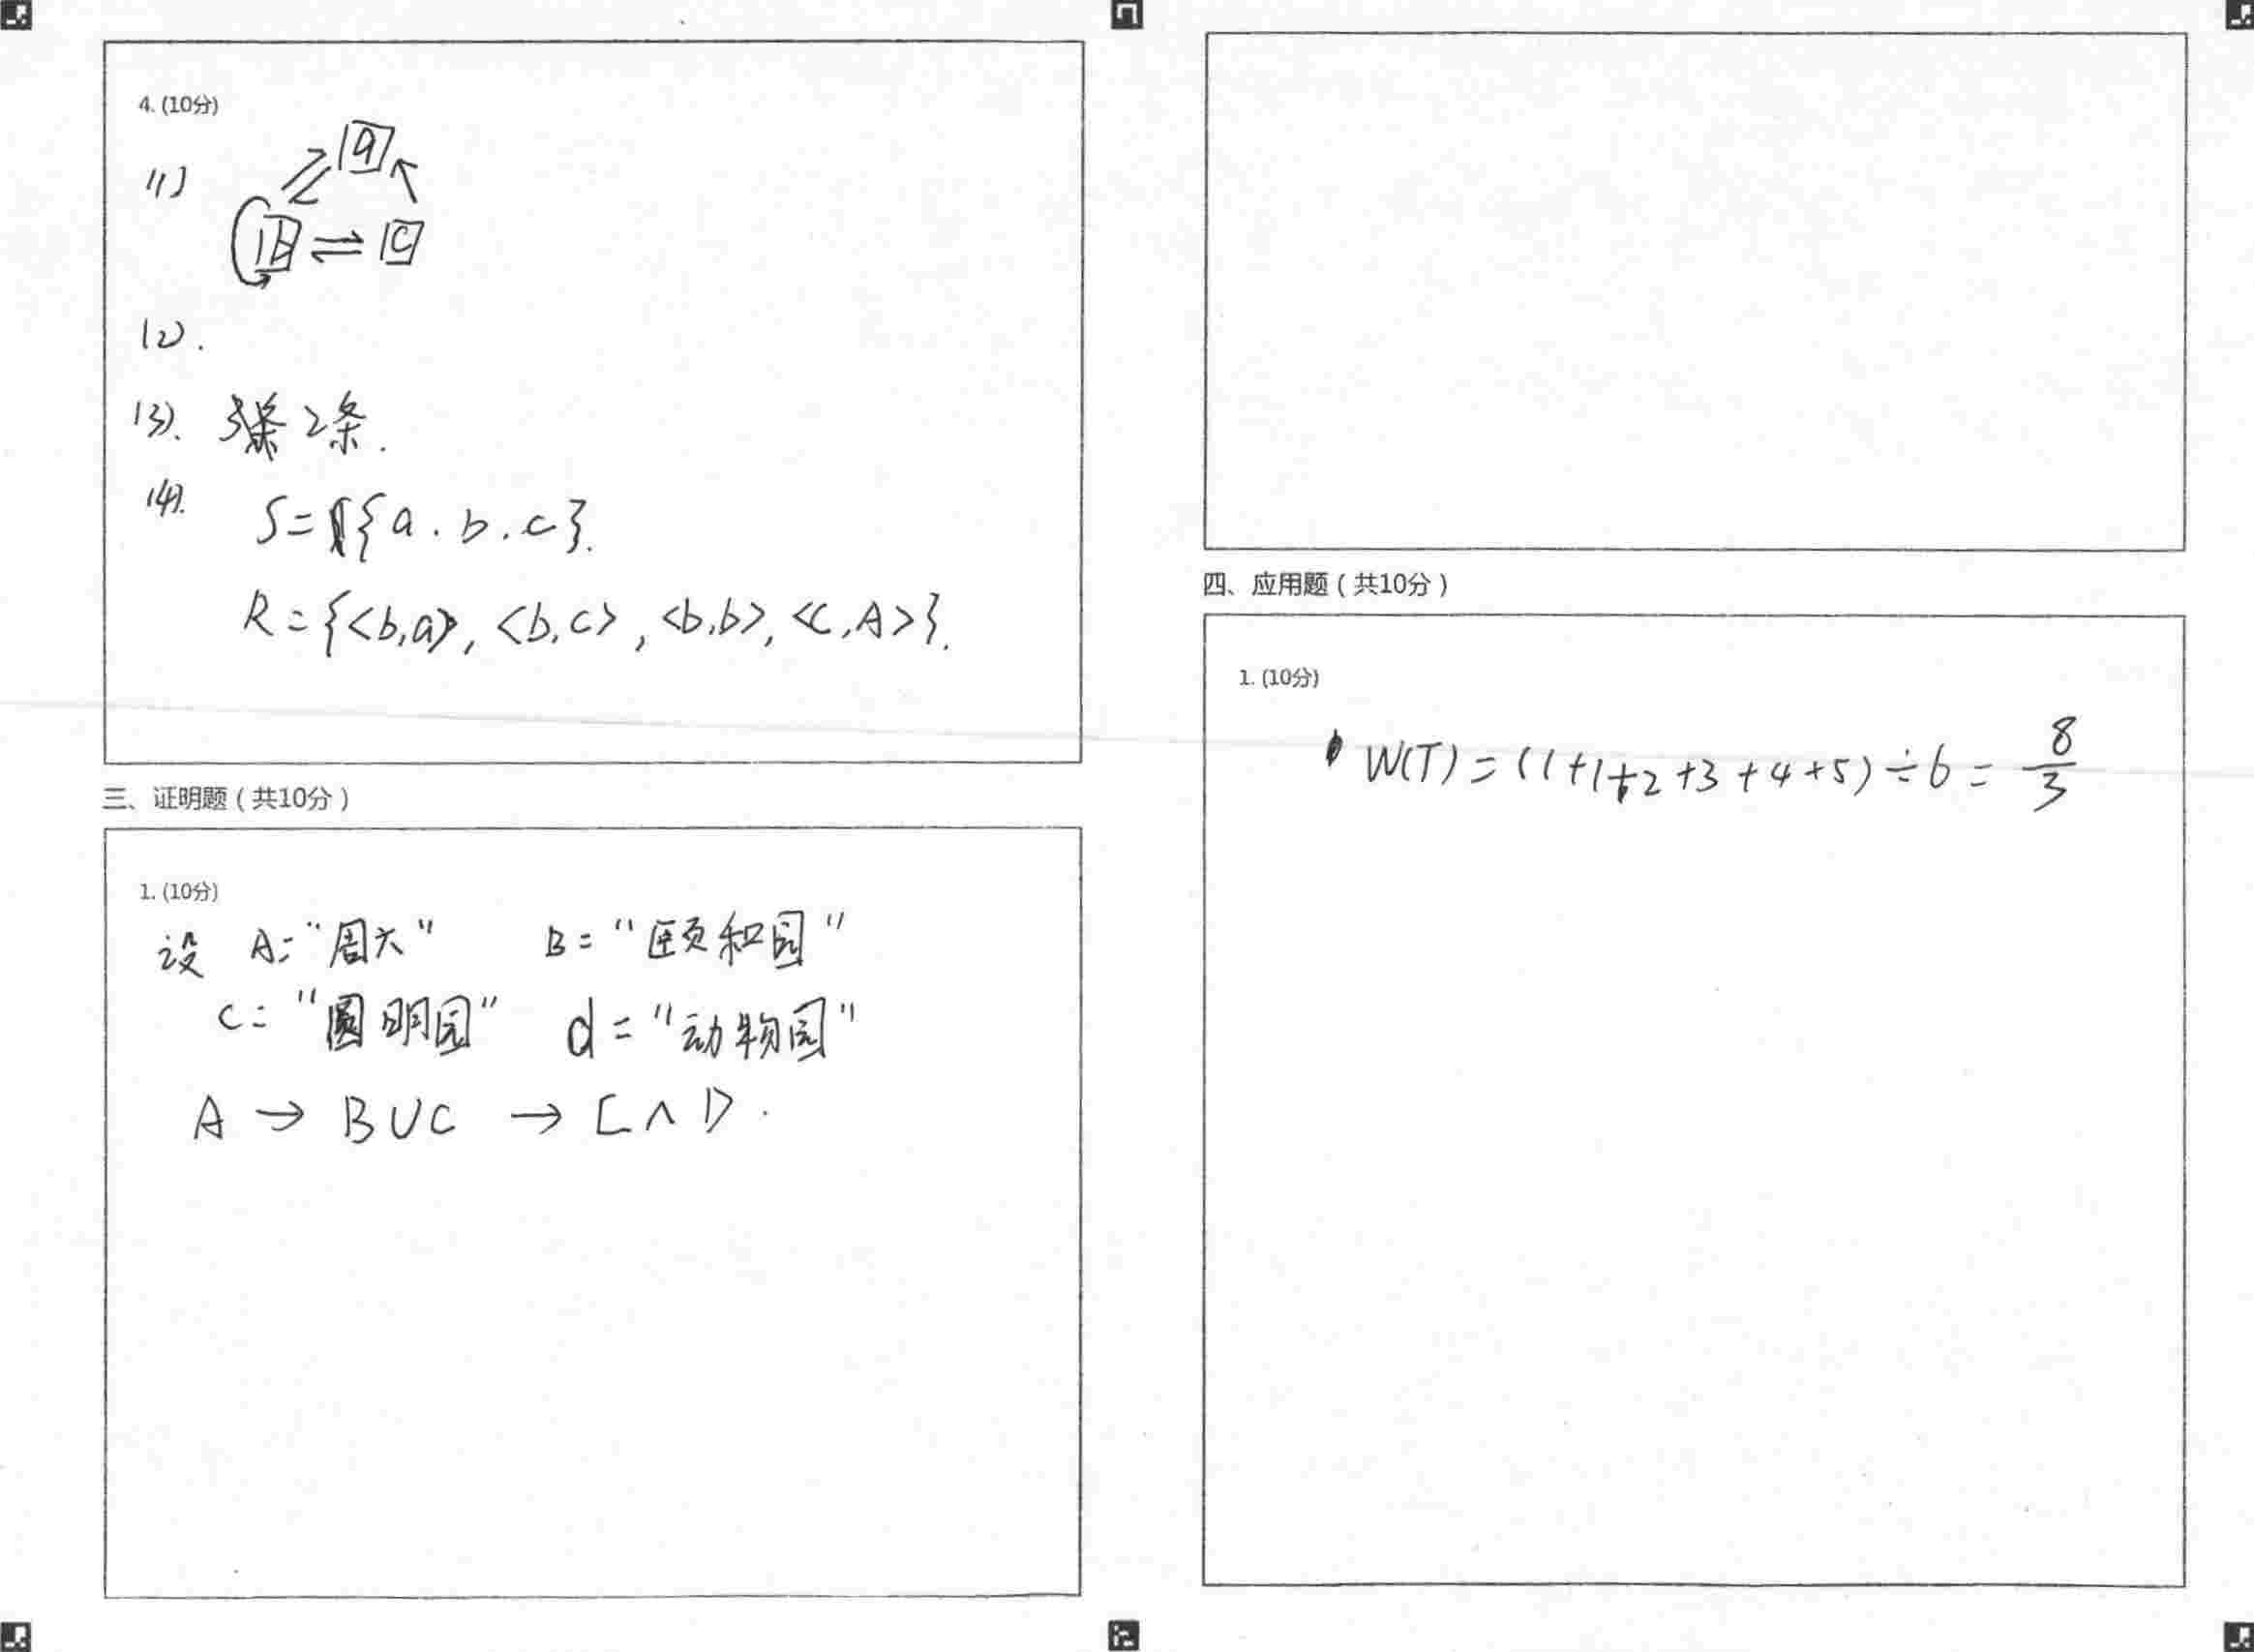 4. (10分)
(1)
a
b ⇌ c
(2).
(3). 2条.
(4).
S={a.b.c}.
R={<b,a>, <b,c>, <b,b>, <c,A>}.
三、证明题（共10分）
1. (10分)
设 A="周六" B="颐和园"
C="圆明园" d="动物园"
A → B∪C → [∧D.
四、应用题（共10分）
1. (10分)
W(T)=(1+1+2+3+4+5)÷6=8/3